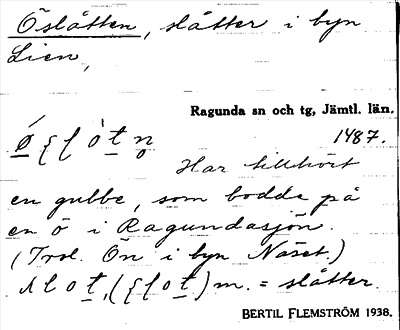 Öslåtten, slåtter i byn
Lien,
Ragunda sn och tg, Jämtl. län.
1487.
Har tillhört
en gubbe, som bodde på
en ö i Ragundasjön.
(Trol. Ön i byn Näset.)
m. = slåtter.
BERTIL FLEMSTRÖM 1938.